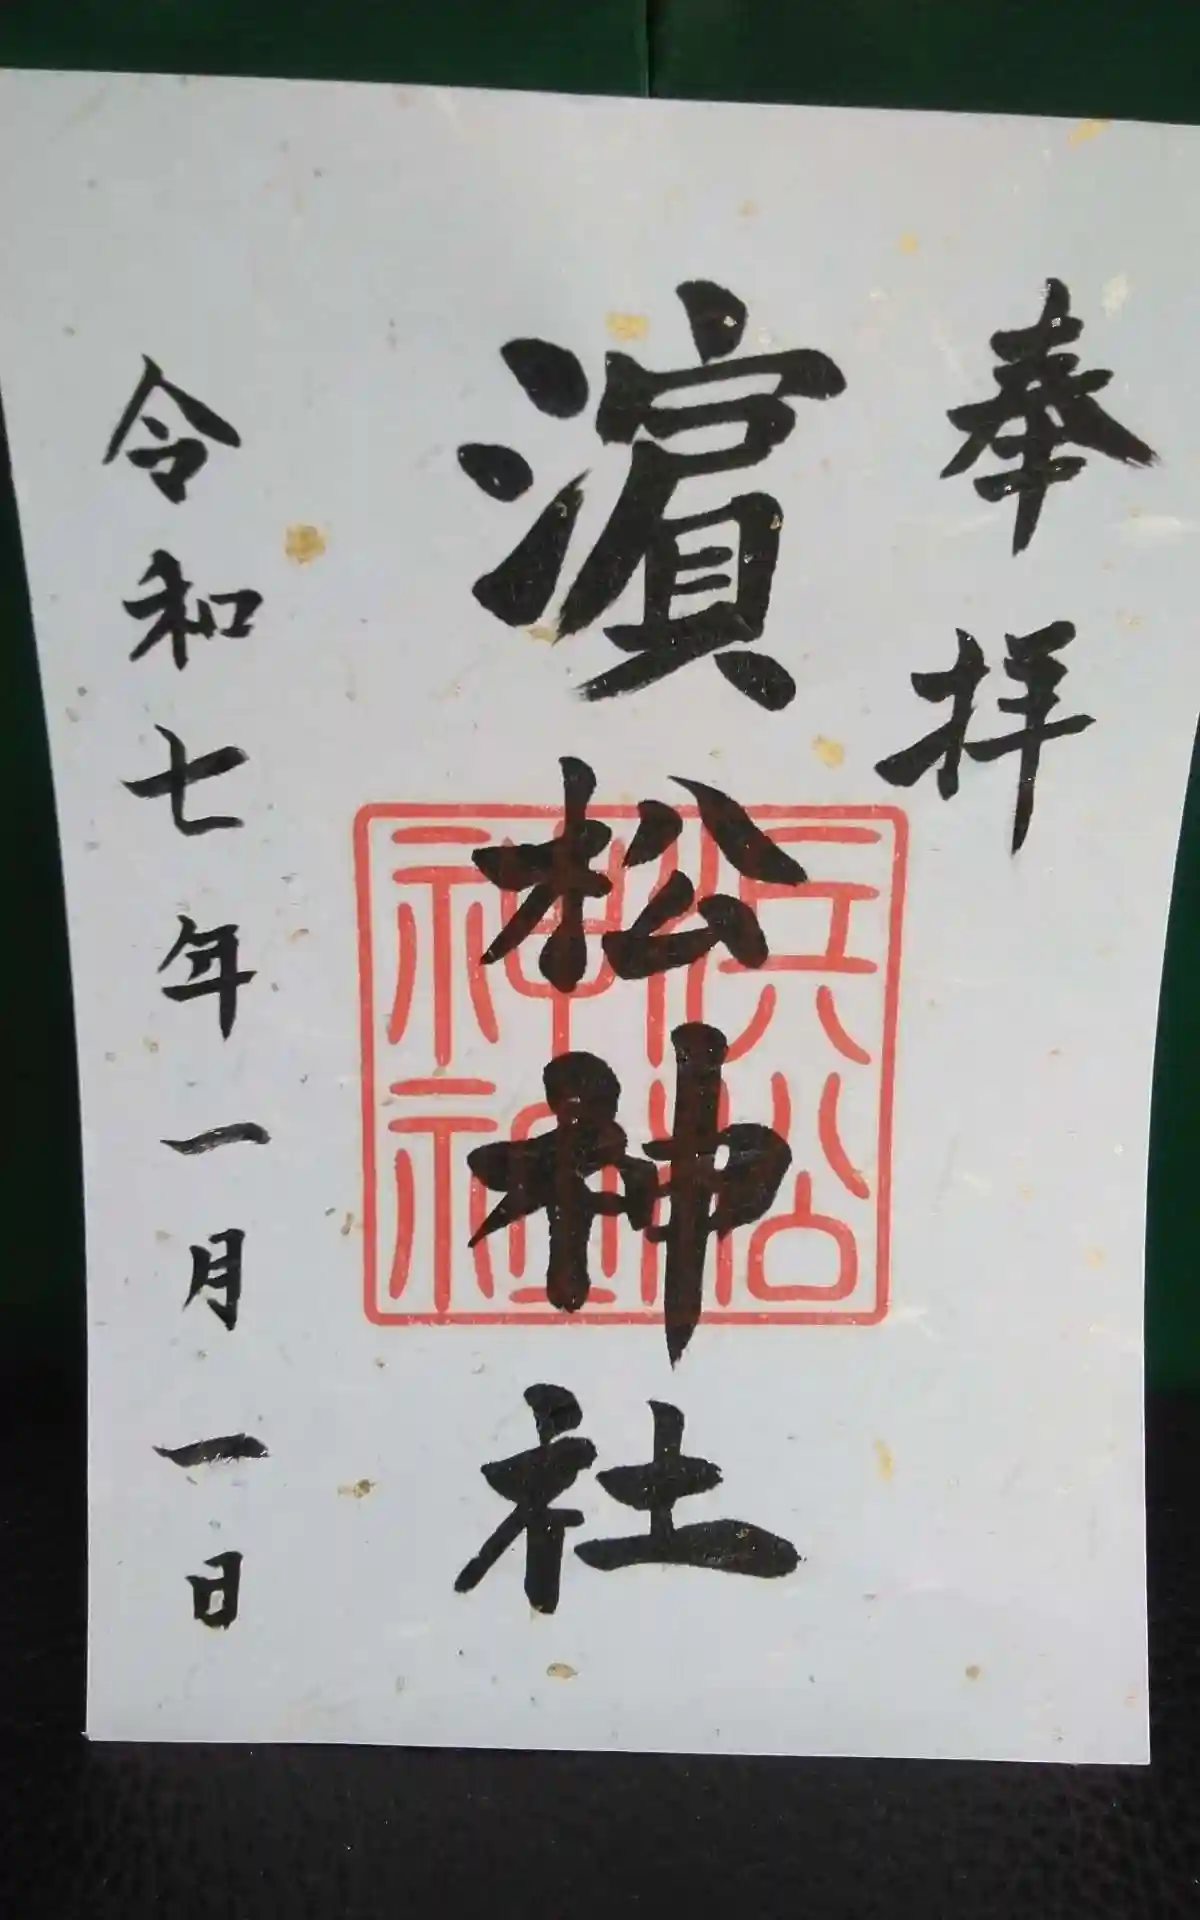 奉拝
濵松神社
浜松神社
令和七年一月一日